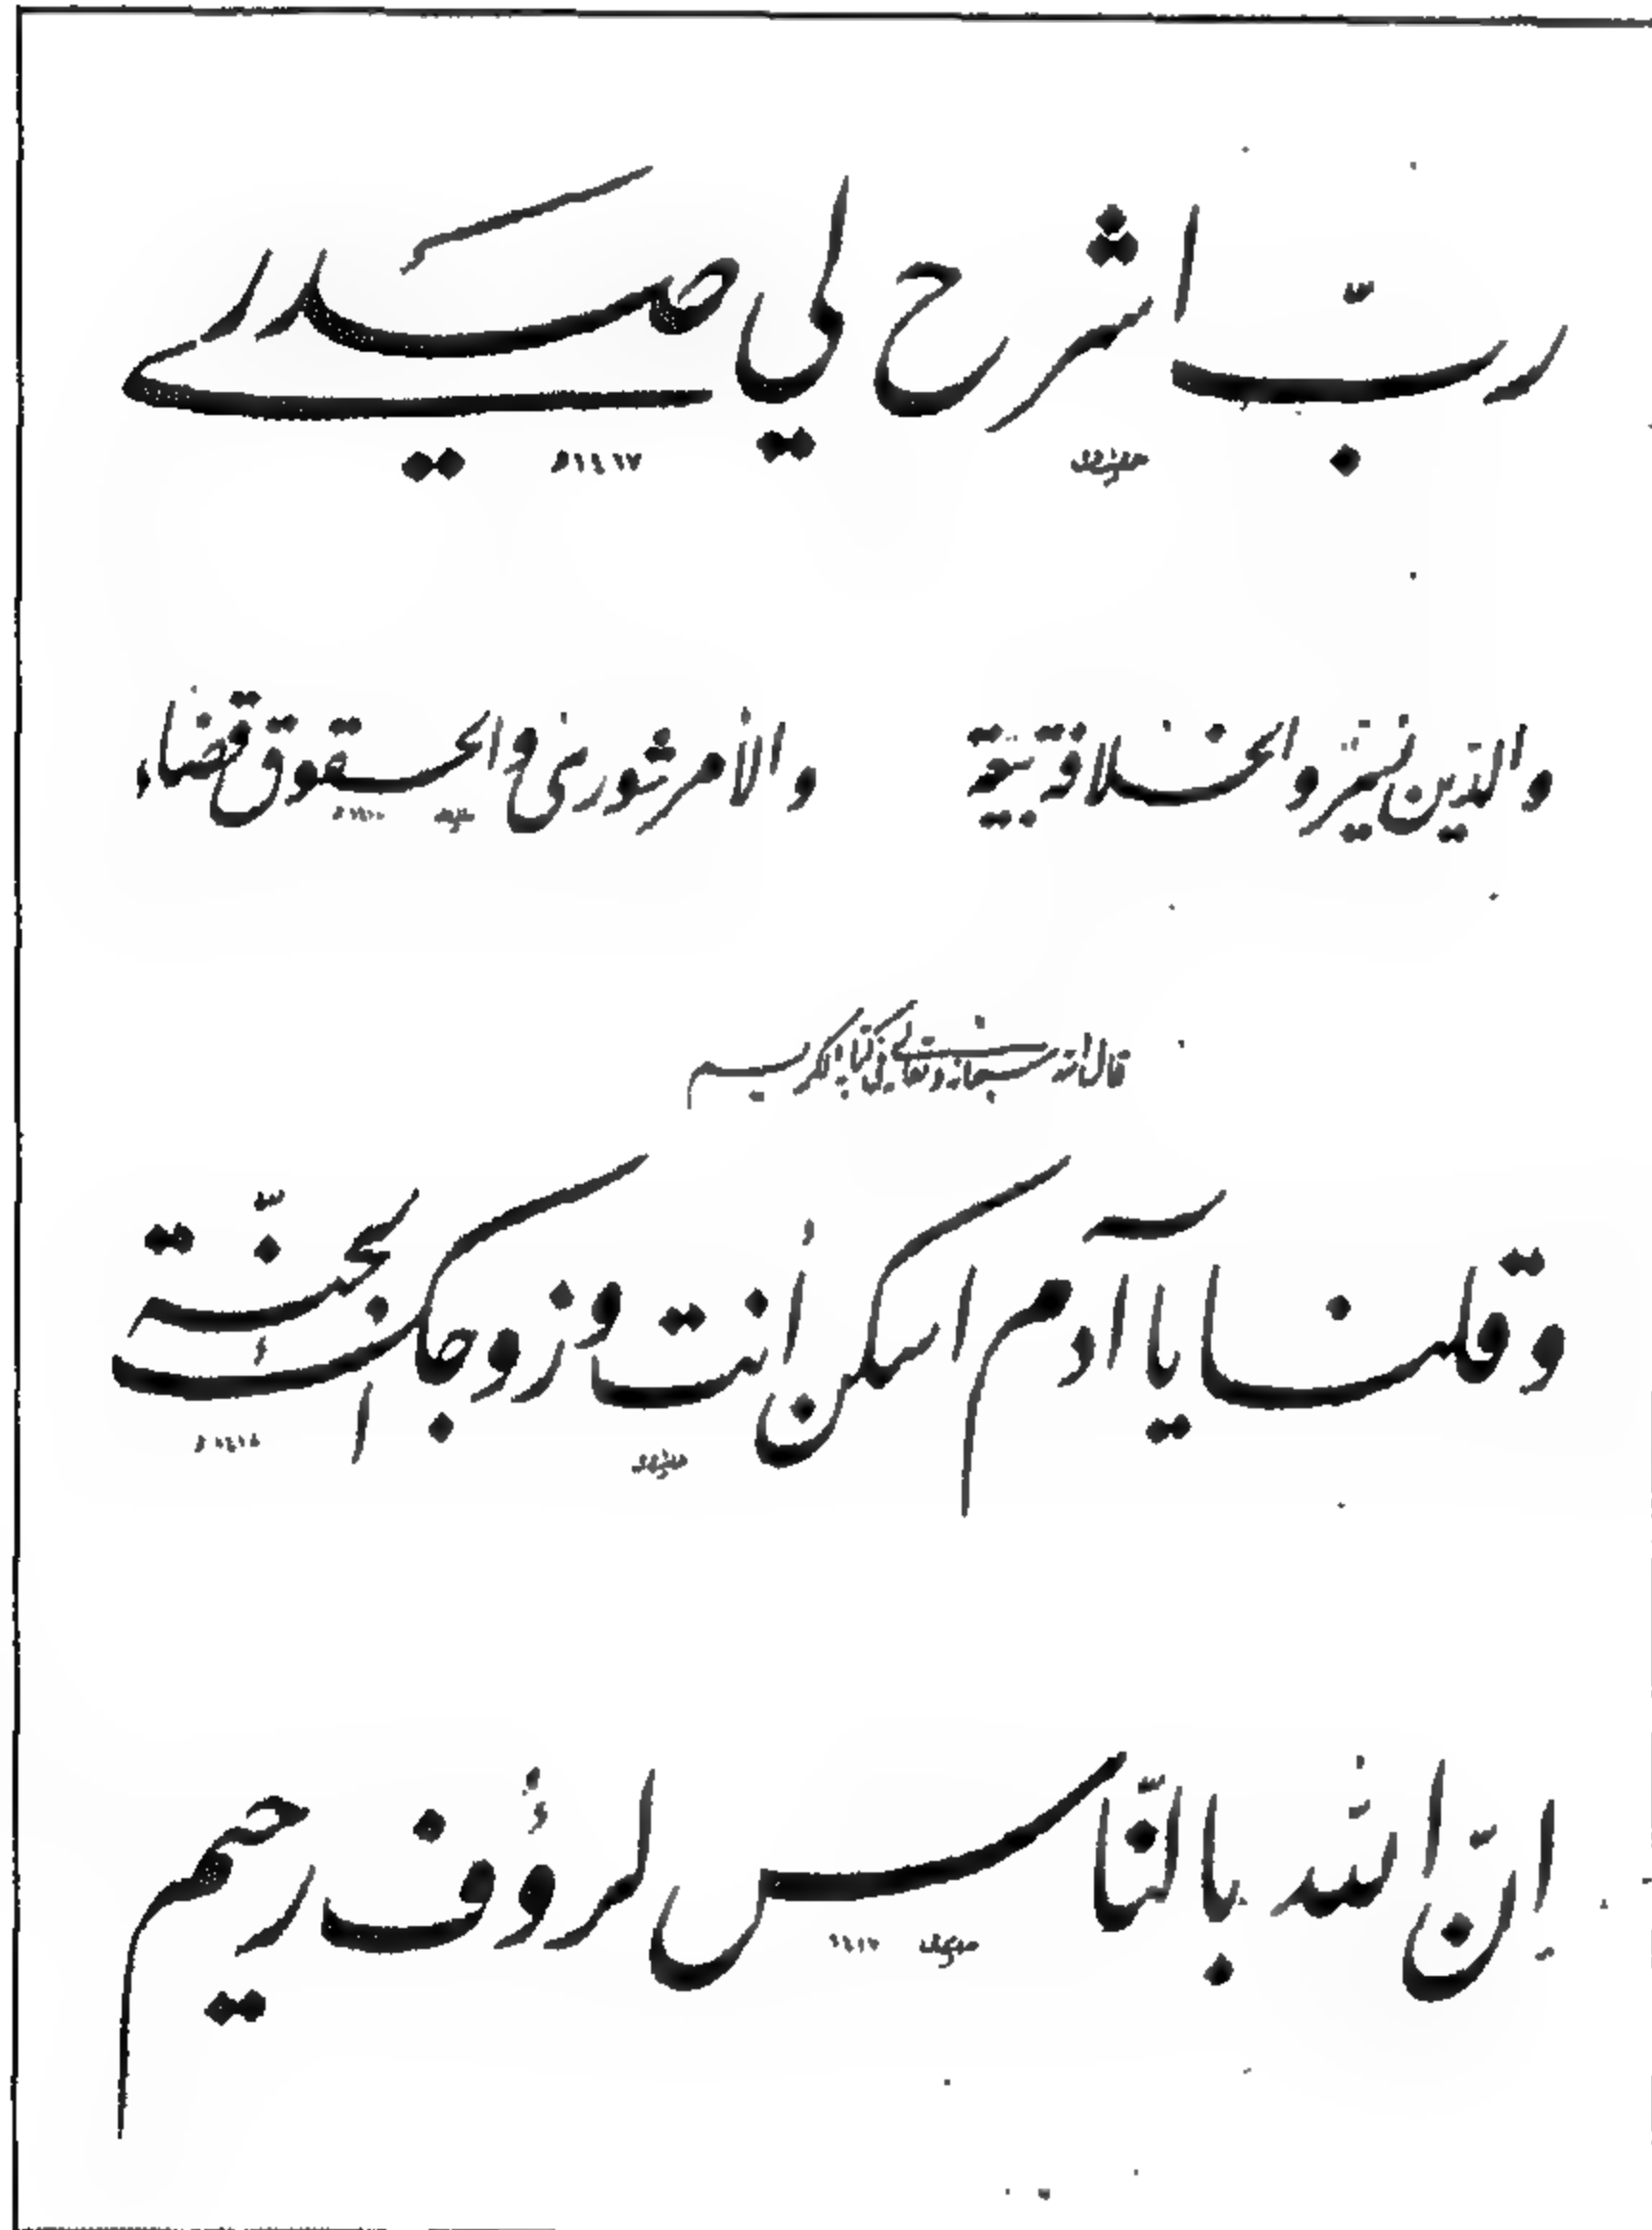 ربّ اشرح لي صدري
١٤١٧
والدين يسر والخلافة بيعة والأمر شورى والحقوق قضاء
قال الله سبحانه وتعالى في كتابه الكريم
وقلنا يا آدم اسكن أنت وزوجك الجنّة
إنّ الله بالنّاس لرؤف رحيم
١٤١٧